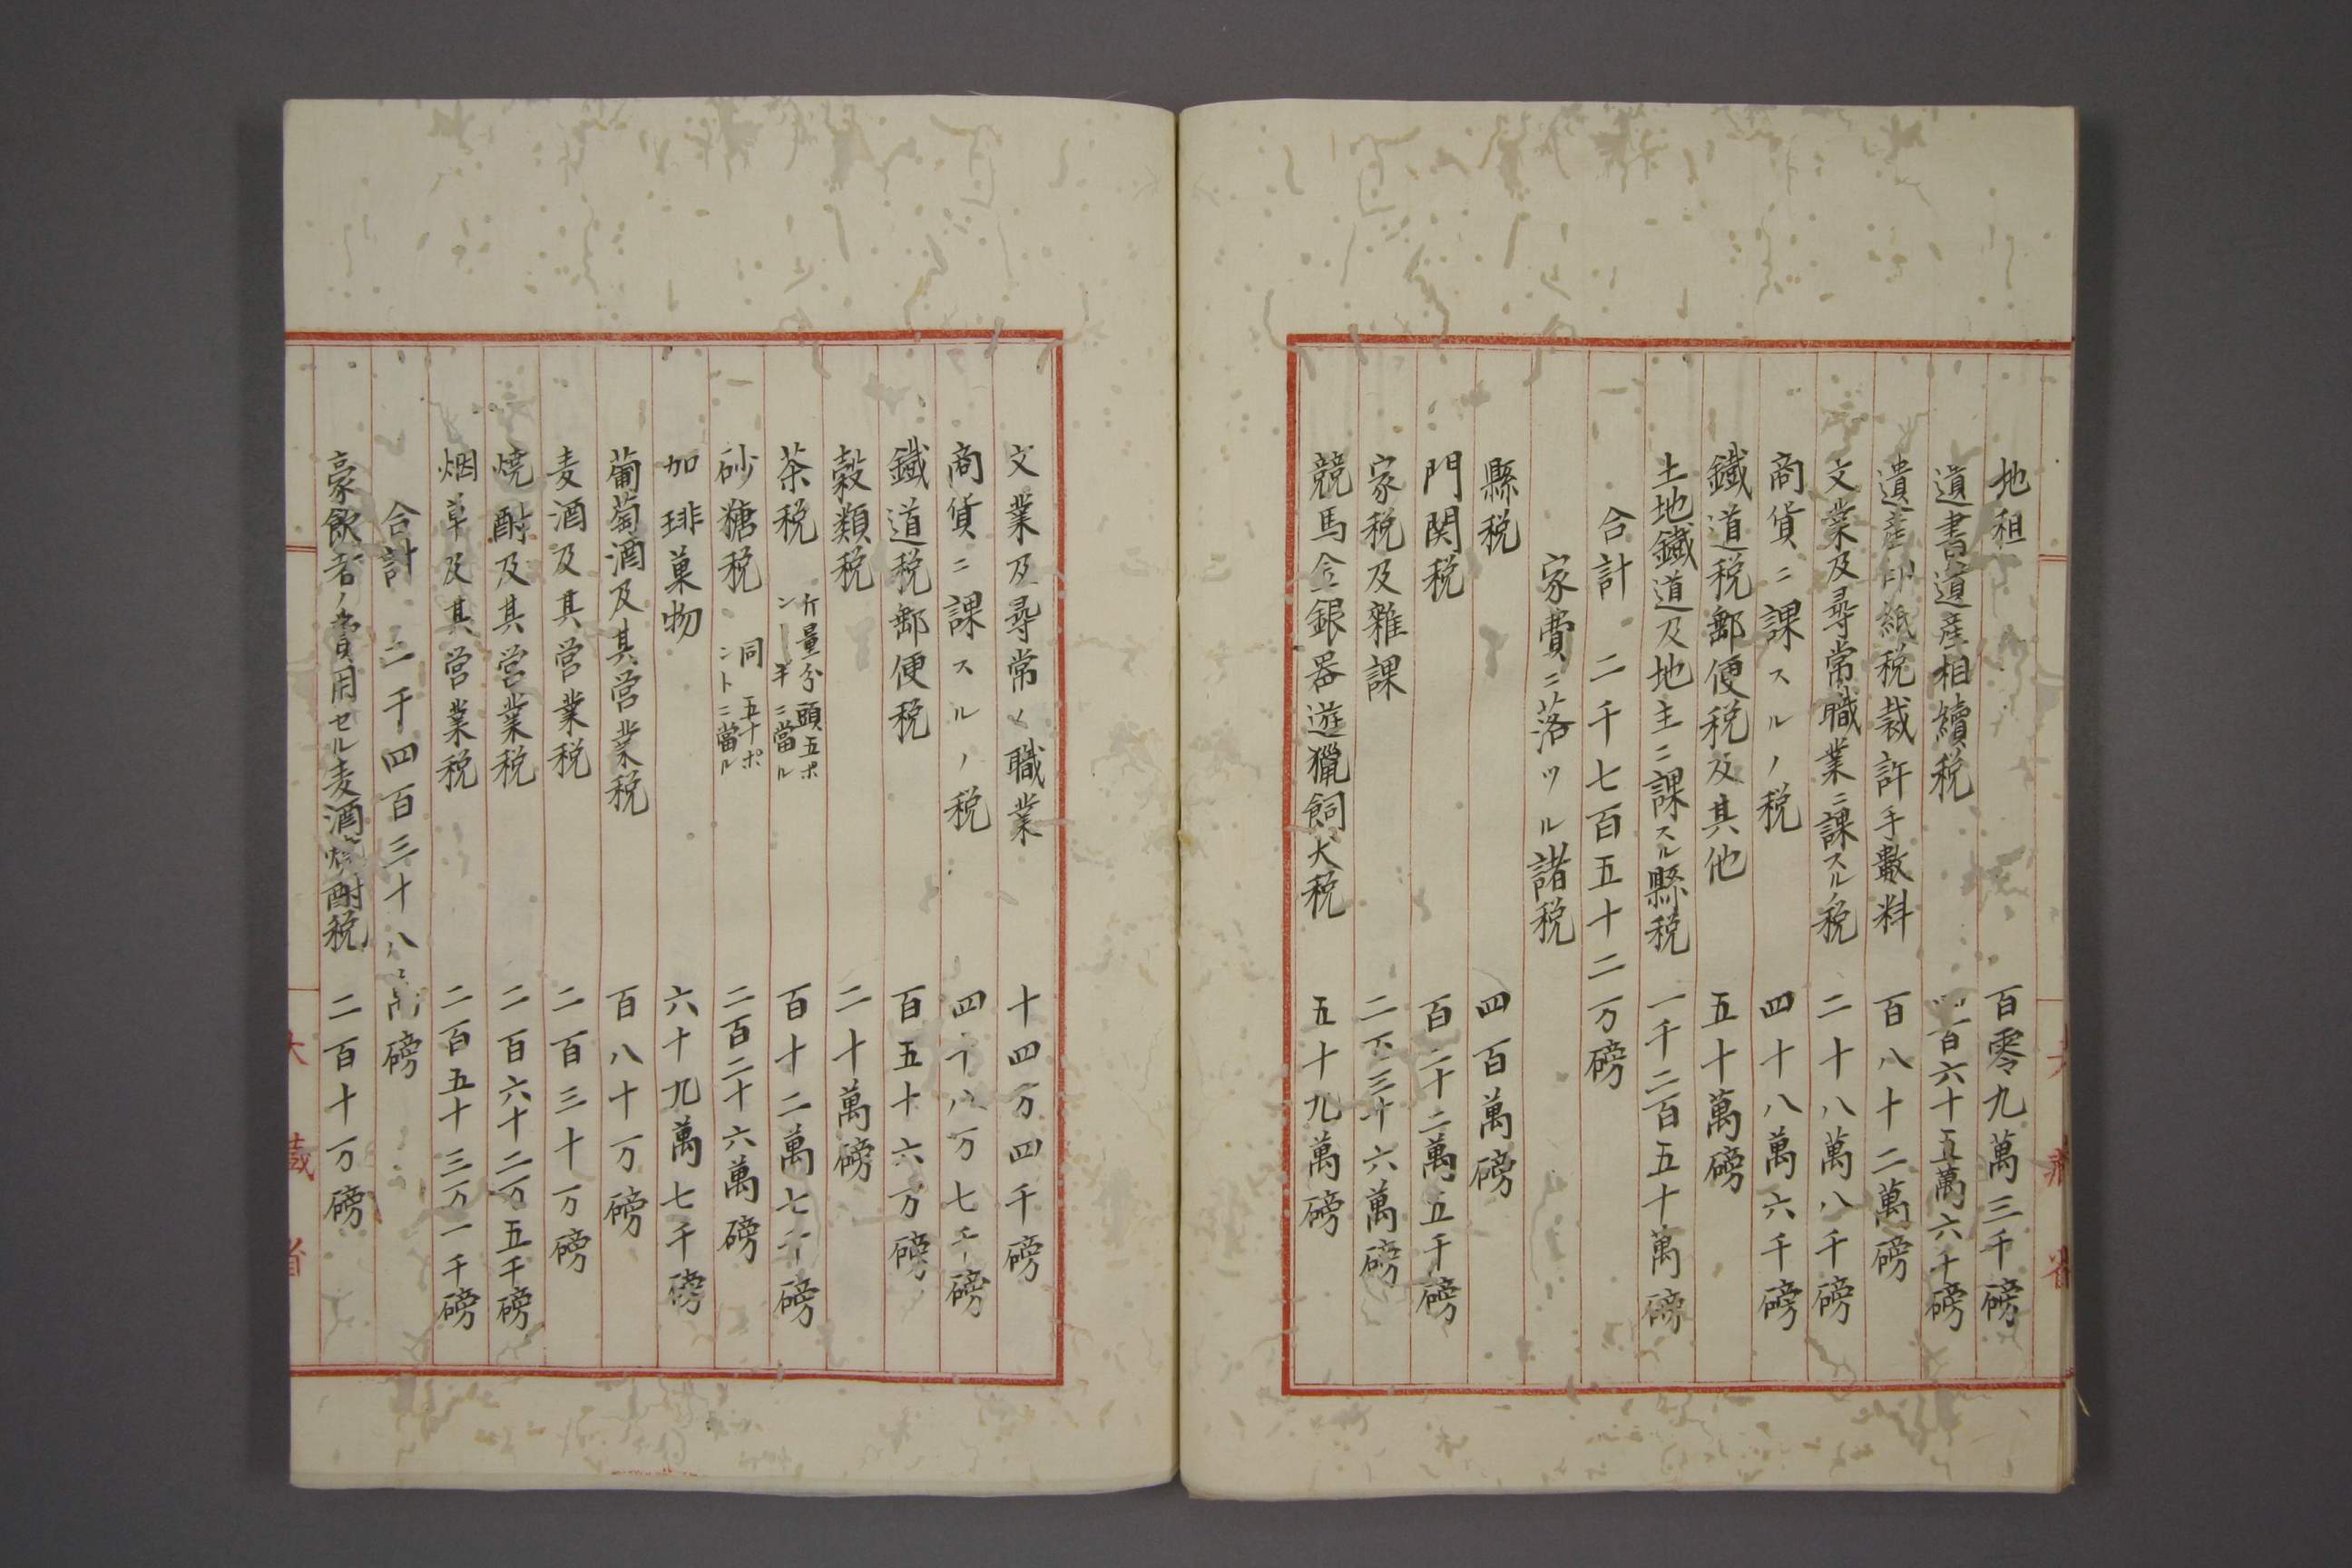 地租 百零九萬三千磅
遺書遺産相續税 四百六十五萬六千磅
遺産印紙税裁許手數料 百八十二萬磅
文業及尋常職業ニ課スルノ税 二十八萬八千磅
商貨ニ課スルノ税 四十八萬六千磅
鐵道税郵便税及其他 五十萬磅
土地鐵道及地主ニ課スル縣税 一千二百五十萬磅
合計 二千七百五十二万磅
家費ニ落ツル諸税
縣税 四百萬磅
門関税 百二十二萬五千磅
家税及雜課 二百三十六萬磅
競馬金銀器遊獵飼犬税 五十九萬磅
文業及尋常ノ職業 十四万四千磅
商貨ニ課スルノ税 四十八万七千磅
鐵道税郵便税 百五十六万磅
穀類税 二十萬磅
茶税 斤量分頭五ポンド半ニ當ル 百十二萬七千磅
砂糖税 同五十ポンドニ當ル 二百二十六萬磅
加琲菓物 六十九萬七千磅
葡萄酒及其営業税 百八十万磅
麦酒及其営業税 二百三十万磅
焼酎及其営業税 二百六十二万五千磅
烟草及其営業税 二百五十三万一千磅
合計 二千四百三十八萬磅
豪飲者ノ費用セル麦酒焼酎税 二百十万磅
大藏省